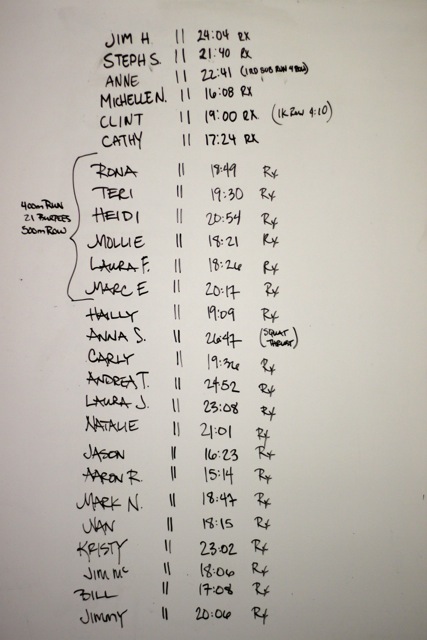 JIM H || 24:04 RX
STEPH S. || 21:40 RX
ANNE || 22:41 (1 RD SUB RUN 4 ROW)
MICHELLE N. || 16:08 RX
CLINT || 19:00 RX (1K ROW 4:10)
CATHY || 17:24 RX
400m RUN
21 BURPEES
500m ROW
RONA || 18:49 Rx
TERI || 19:30 Rx
HEIDI || 20:54 Rx
MOLLIE || 18:21 Rx
LAURA F. || 18:26 Rx
MARC E || 20:17 Rx
HAILLY || 19:09 Rx
ANNA S. || 26:47 (SQUAT THRUST)
CARLY || 19:36 Rx
ANDREA T. || 24:52 Rx
LAURA J. || 23:08 Rx
NATALIE || 21:01 Rx
JASON || 16:23 Rx
AARON R. || 15:14 Rx
MARK N. || 18:47 Rx
NAN || 18:15 Rx
KRISTY || 23:02 Rx
JIM MC || 18:06 Rx
BILL || 17:08 Rx
JIMMY || 20:06 Rx